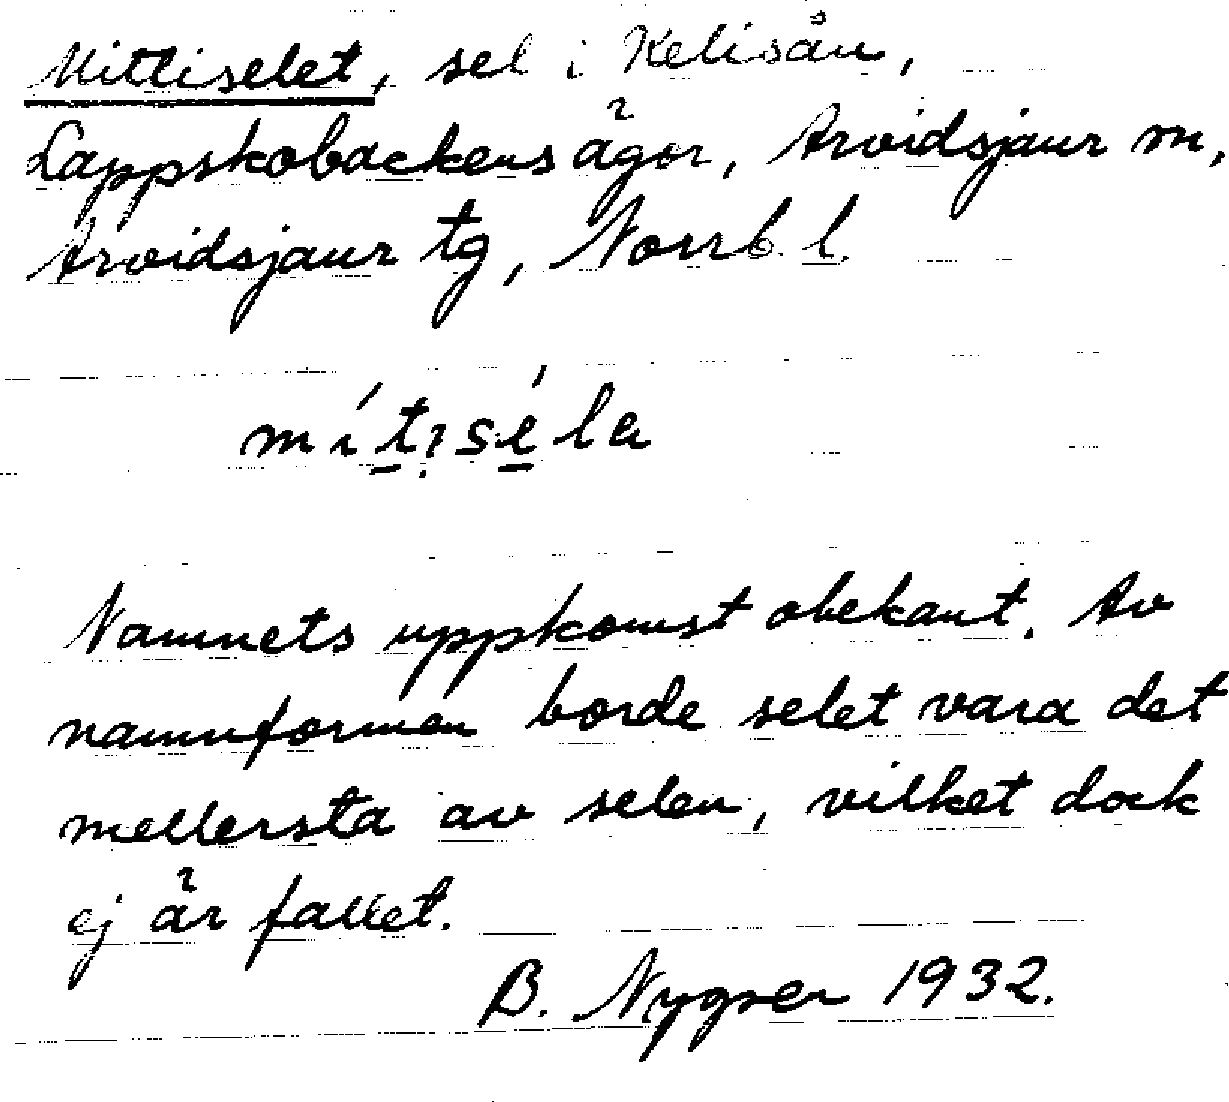 Mittiselet, sel i Kelisån,
Lappskobackens ägor, Arvidsjaur sn,
Arvidsjaur tg, Norrb. l.
mítiséla
Namnets uppkomst obekant. Av
namnformen borde selet vara det
mellersta av selen, vilket dock
ej är fallet.
B. Nygren 1932.